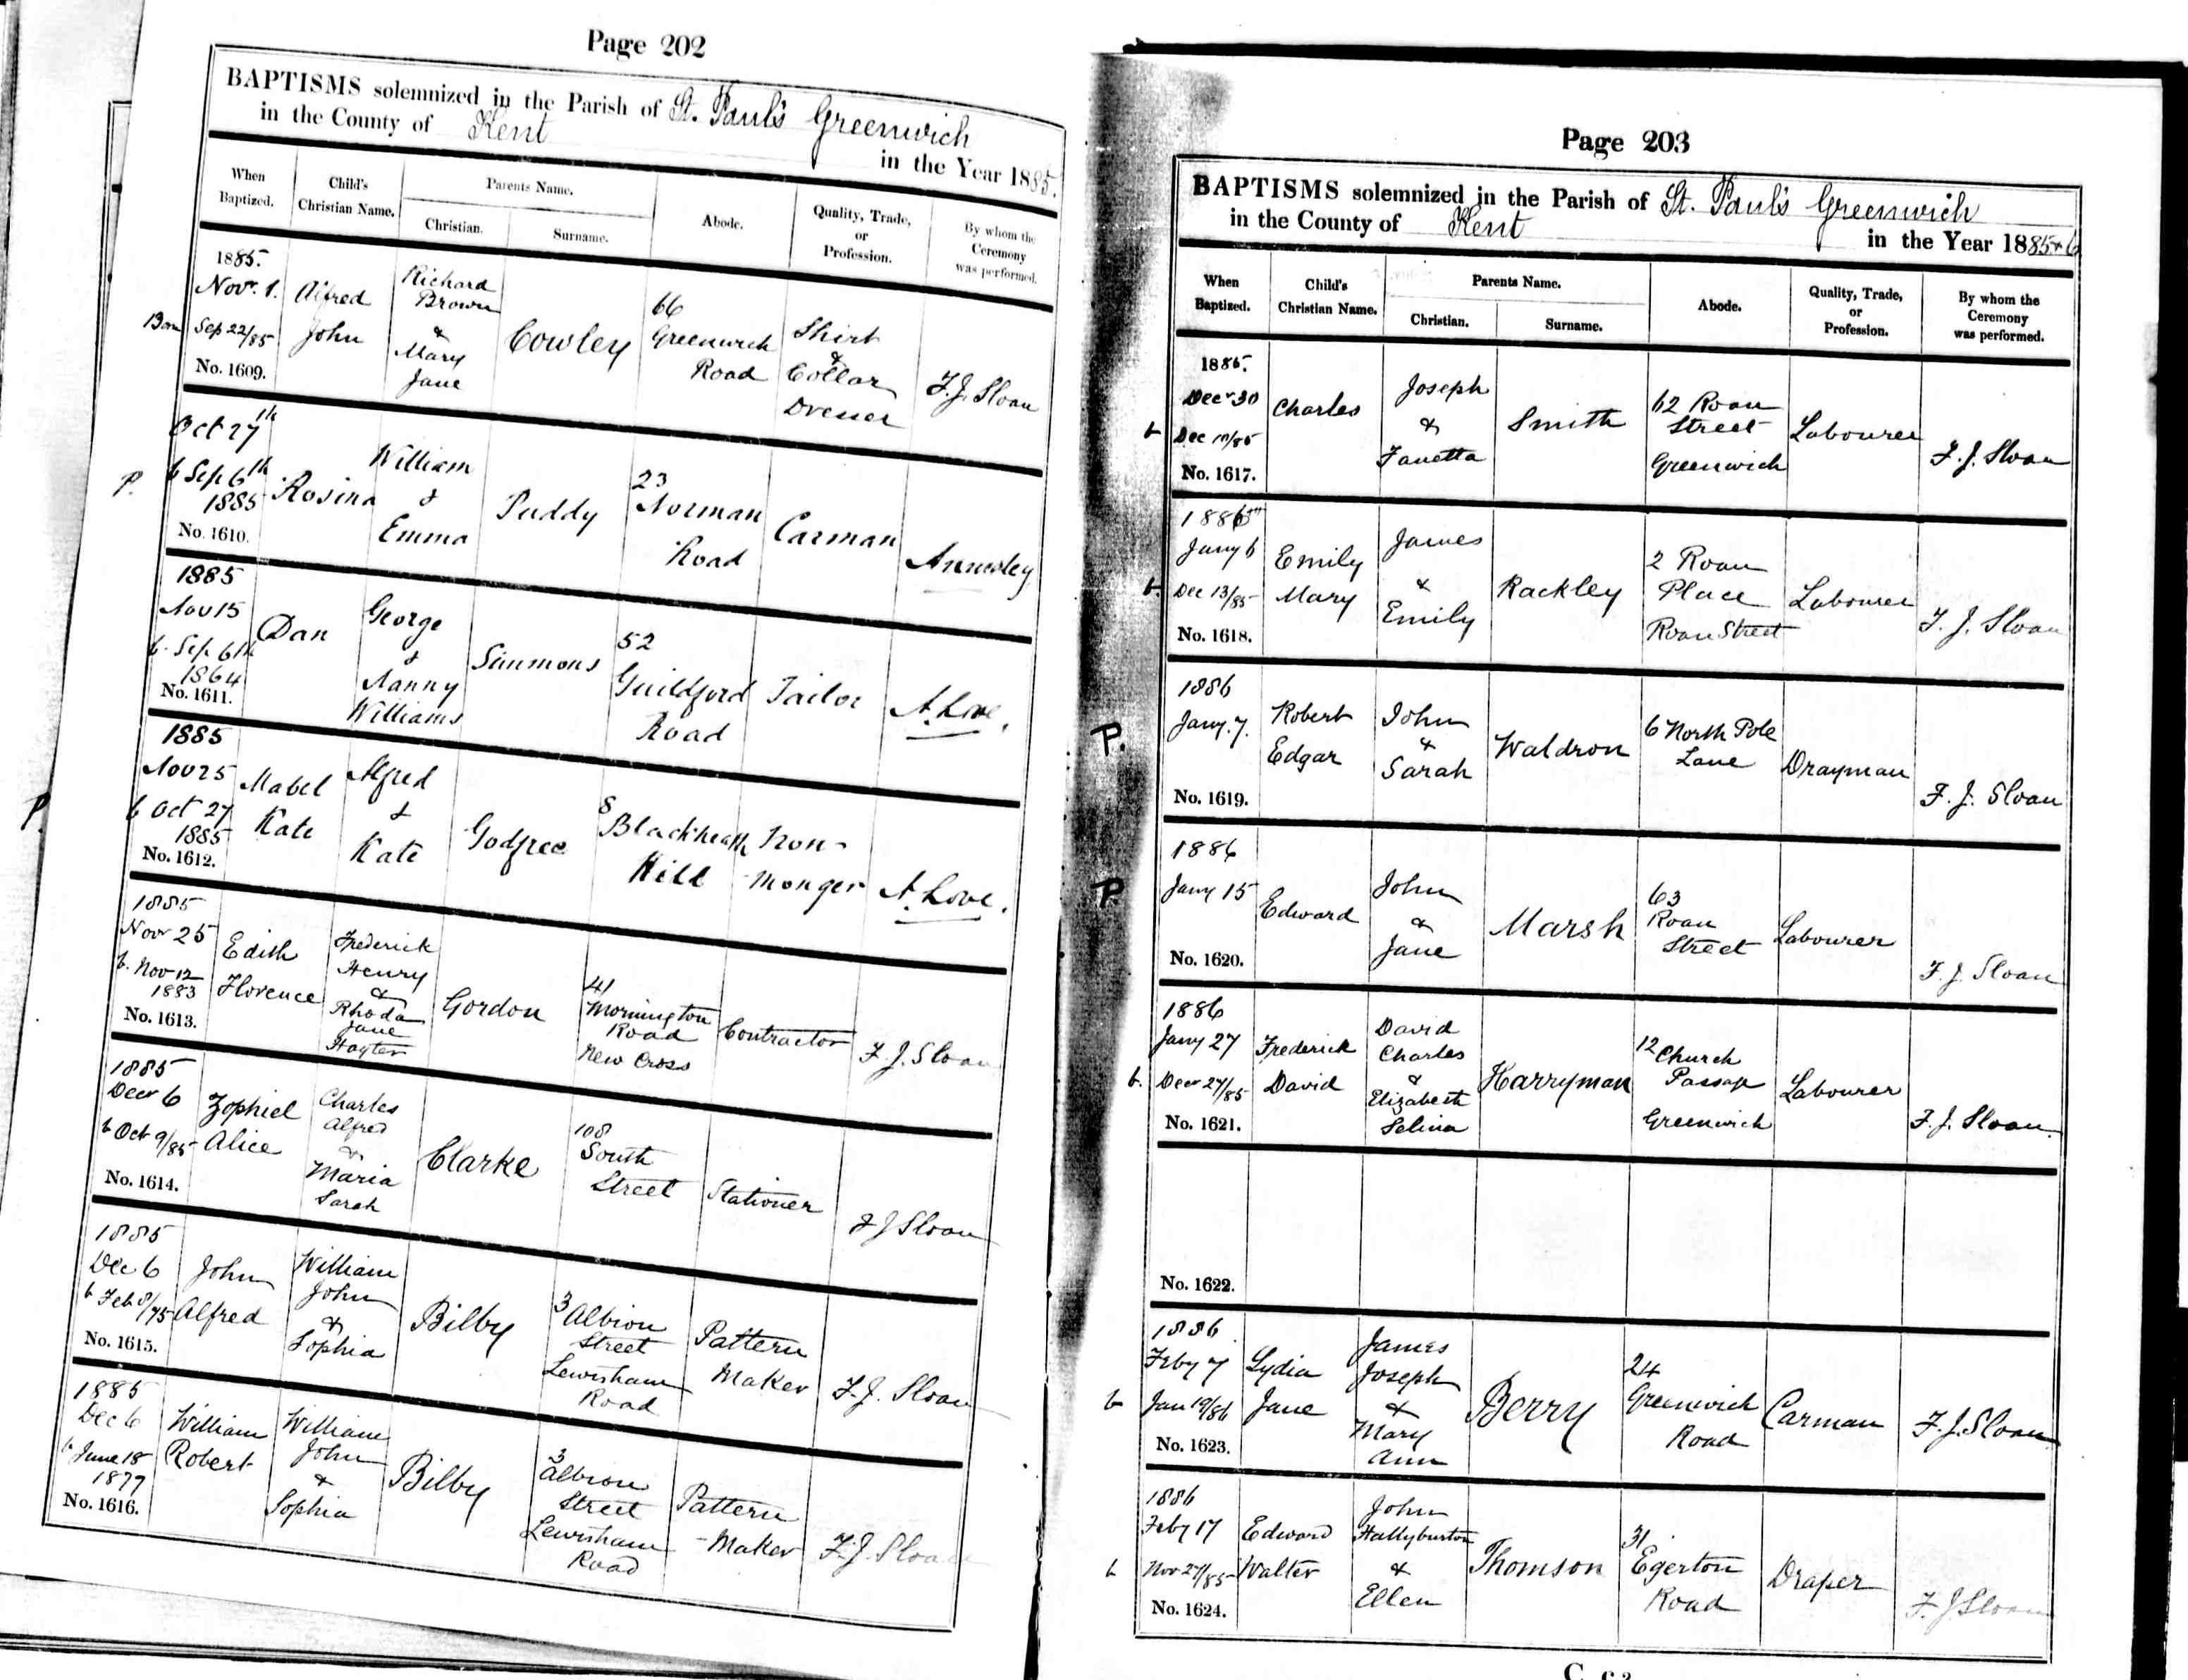 Page 202
BAPTISMS solemnized in the Parish of St. Paul's Greenwich
in the County of Kent in the Year 1885.
When Baptized.
Child's Christian Name.
Parents Name.
Christian.
Surname.
Abode.
Quality, Trade, or Profession.
By whom the Ceremony was performed.
1885.
Novr. 1.
Born Sep 22/85
No. 1609.
Alfred
John
Richard
Brown
&
Mary
Jane
Cowley
66
Greenwich
Road
Shirt
&
Collar
Dresser
F. J. Sloan
Oct 27th
P.
b Sep 6th
1885
No. 1610.
Rosina
William
&
Emma
Puddy
23
Norman
Road
Carman
Annesley
1885
Nov 15
b. Sep 6th
1864
No. 1611.
Dan
George
&
Nanny
Williams
Simmons
52
Guildford
Road
Tailor
A. Love.
1885
Nov 25
P.
b Oct 27
1885
No. 1612.
Mabel
Kate
Alfred
&
Kate
Godfree
8
Blackheath
Hill
Iron-
monger
A. Love.
1885
Nov 25
b. Nov 12
1883
No. 1613.
Edith
Florence
Frederick
Henry
&
Rhoda
Jane
Hayter
Gordon
41
Mornington
Road
New Cross
Contractor
F. J. Sloan
1885
Decr 6
b Oct 9/85
No. 1614.
Zophiel
Alice
Charles
Alfred
&
Maria
Sarah
Clarke
108
South
Street
Stationer
F J Sloan
1885
Dec 6
b Feb 8/75
No. 1615.
John
Alfred
William
John
&
Sophia
Bilby
3 Albion
Street
Lewisham
Road
Pattern
Maker
F. J. Sloan
1885
Dec 6
b June 18
1877
No. 1616.
William
Robert
William
John
&
Sophia
Bilby
3
Albion
Street
Lewisham
Road
Pattern
-Maker
F. J. Sloan
Page 203
BAPTISMS solemnized in the Parish of St. Paul's Greenwich
in the County of Kent in the Year 1885 & 6
When Baptized.
Child's Christian Name.
Parents Name.
Christian.
Surname.
Abode.
Quality, Trade, or Profession.
By whom the Ceremony was performed.
1885.
Decr 30
b Dec /85
No. 1617.
Charles
Joseph
&
Fanetta
Smith
62 Roan
Street
Greenwich
Labourer
F. J. Sloan
1886
Jany 6
b. Dec 13/85
No. 1618.
Emily
Mary
James
&
Emily
Rackley
2 Roan
Place
Roan Street
Labourer
F. J. Sloan
1886
Jany. 7.
P.
No. 1619.
Robert
Edgar
John
&
Sarah
Waldron
6 North Pole
Lane
Drayman
F. J. Sloan
1886
P
Jany 15
No. 1620.
Edward
John
&
Jane
Marsh
63
Roan
Street
Labourer
F. J. Sloan
1886
Jany 27
b. Decr 27/85
No. 1621.
Frederick
David
David
Charles
&
Elizabeth
Selina
Harryman
12 Church
Passage
Greenwich
Labourer
F. J. Sloan.
No. 1622.
1886
Feby 7
b Jan 19/86
No. 1623.
Lydia
Jane
James
Joseph
&
Mary
Ann
Berry
24
Greenwich
Road
Carman
F. J. Sloan
1886
Feby 17
b Nov 27/85
No. 1624.
Edward
Walter
John
Hallyburton
&
Ellen
Thomson
31
Egerton
Road
Draper
F. J Sloan